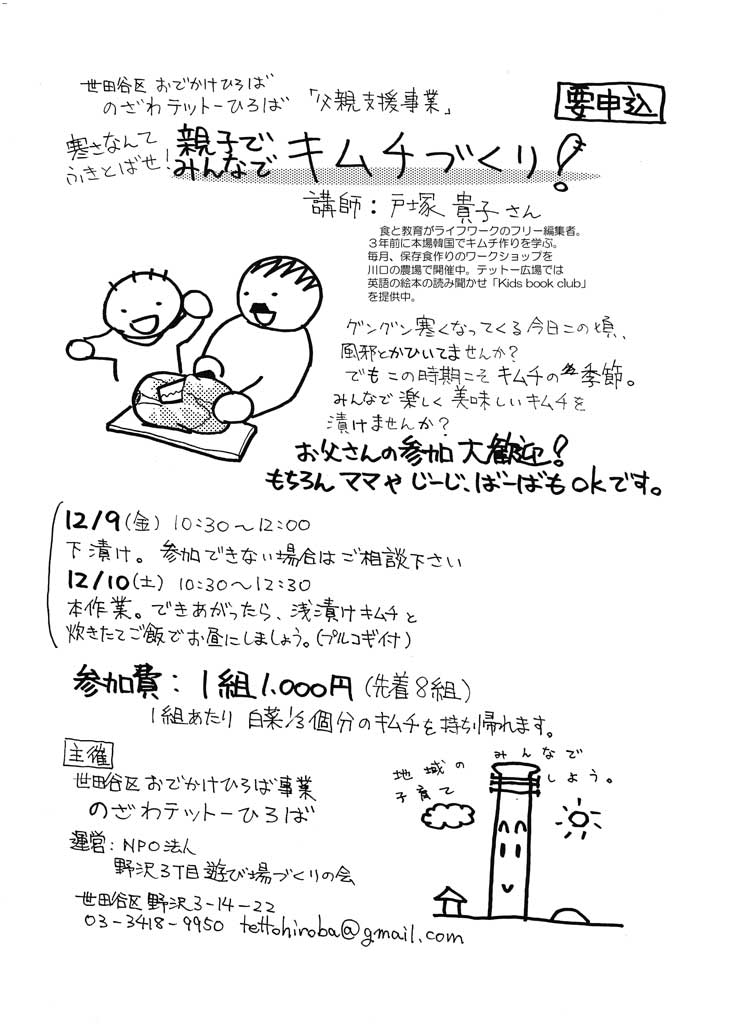 世田谷区 おでかけひろば
のざわテットーひろば 「父親支援事業」
要申込
寒さなんて
ふきとばせ!
親子で
みんなで
キムチづくり!
講師:戸塚 貴子さん
食と教育がライフワークのフリー編集者。
3年前に本場韓国でキムチ作りを学ぶ。
毎月、保存食作りのワークショップを
川口の農場で開催中。テットー広場では
英語の絵本の読み聞かせ「Kids book club」
を提供中。
グングン寒くなってくる今日この頃、
風邪とかひいてませんか?
でもこの時期こそキムチの季節。
みんなで楽しく美味しいキムチを
漬けませんか?
お父さんの参加大歓迎!
もちろんママやじーじ、ばーばもokです。
12/9(金) 10:30~12:00
下漬け。参加できない場合はご相談下さい
12/10(土) 10:30~12:30
本作業。できあがったら、浅漬けキムチと
炊きたてご飯でお昼にしましょう。(プルコギ付)
参加費:1組1,000円(先着8組)
1組あたり 白菜1/3個分のキムチを持ち帰れます。
主催
世田谷区おでかけひろば事業
のざわテットーひろば
運営:NPO法人
野沢3丁目遊び場づくりの会
世田谷区野沢3-14-22
03-3418-9950 tettohiroba@gmail.com
地域の
子育て
みんなで
しよう。